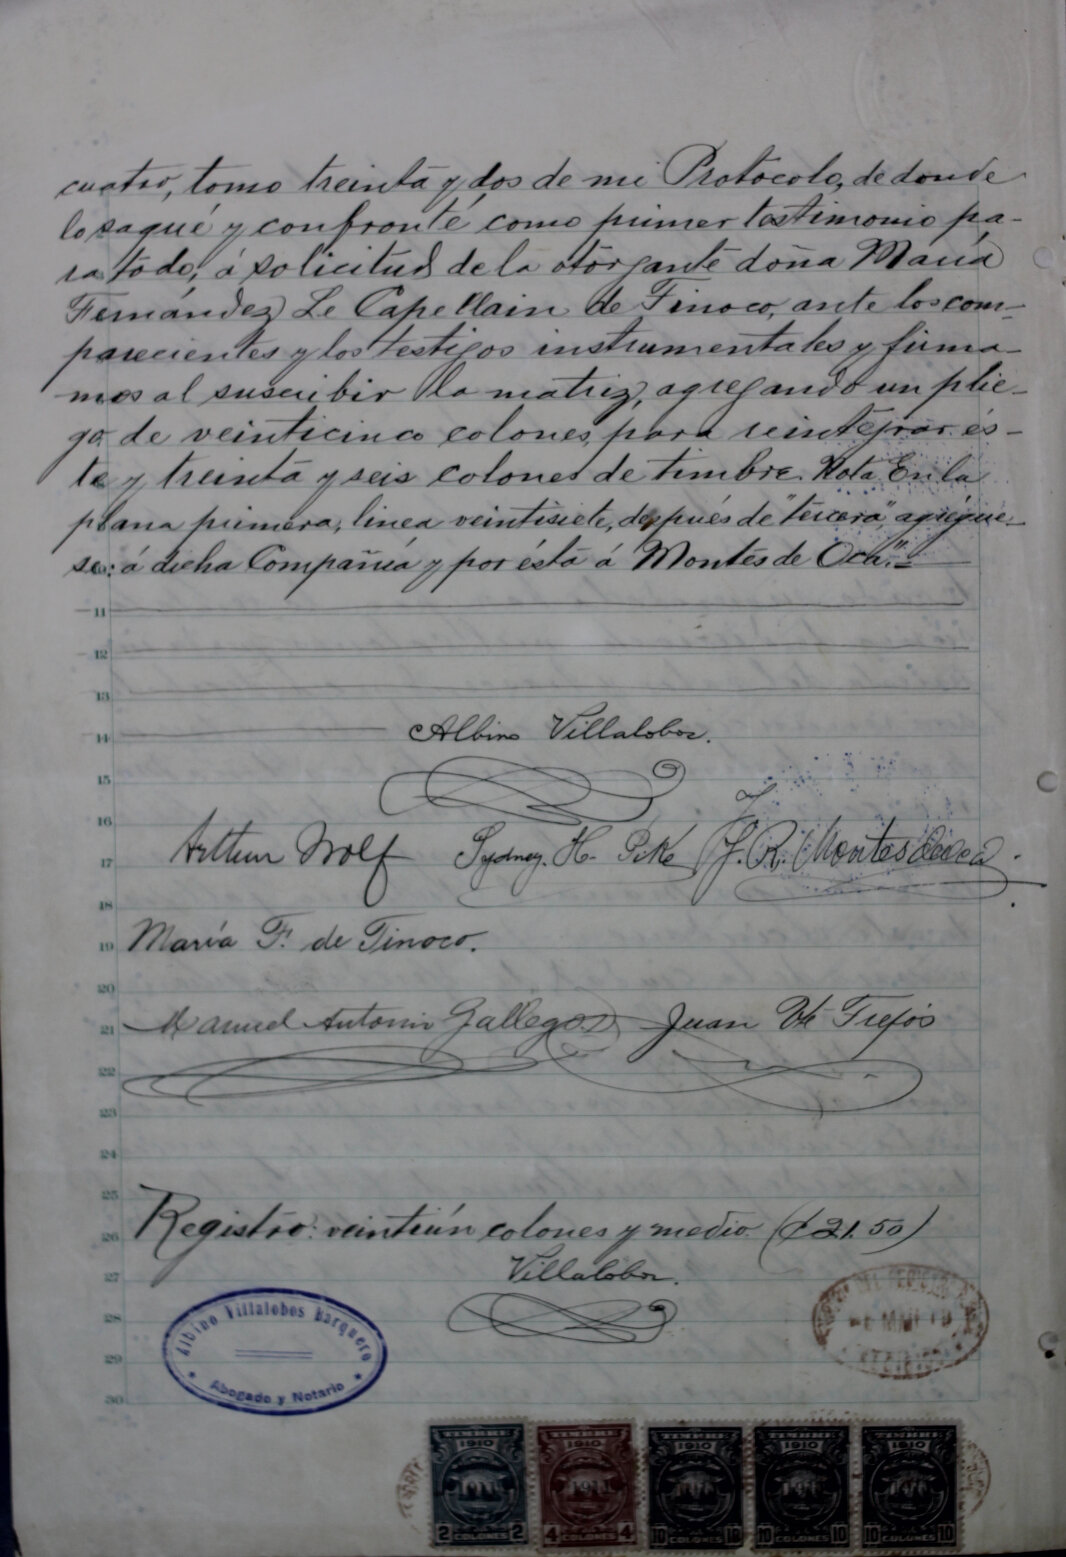 cuatro, tomo treinta y dos de mi Protocolo, de donde
lo saqué y confronté como primer testimonio pa-
ra todo, á solicitud de la otorgante doña María
Fernández Le Capellain de Tinoco, ante los com-
parecientes y los testigos instrumentales y firma-
mos al suscribir la matriz, agregando un plie-
go de veinticinco colones, para reintegrar és-
te y treinta y seis colones de timbre. Nota En la
plana primera, linea veintisiete, después de "tercera", agrégue-
se: á dicha Compañía y por ésta á Montes de Oca."
11
12
13
14 Albino Villalobos.
15
16
17 Arthur Wolf Sydney. H. Pike J. R. Montes de Oca.
18
19 María F. de Tinoco.
20
21 Manuel Antonio Gallegos Juan Trejos
22
23
24
25
26 Registro: veintiún colones y medio. (₡21.50)
27 Villalobos.
28
29
30
Albino Villalobos Barquero
Abogado y Notario
TIMBRE 1910 2 COLONES 2
TIMBRE 1910 4 COLONES 4
TIMBRE 1910 10 COLONES 10
TIMBRE 1910 10 COLONES 10
TIMBRE 1910 10 COLONES 10